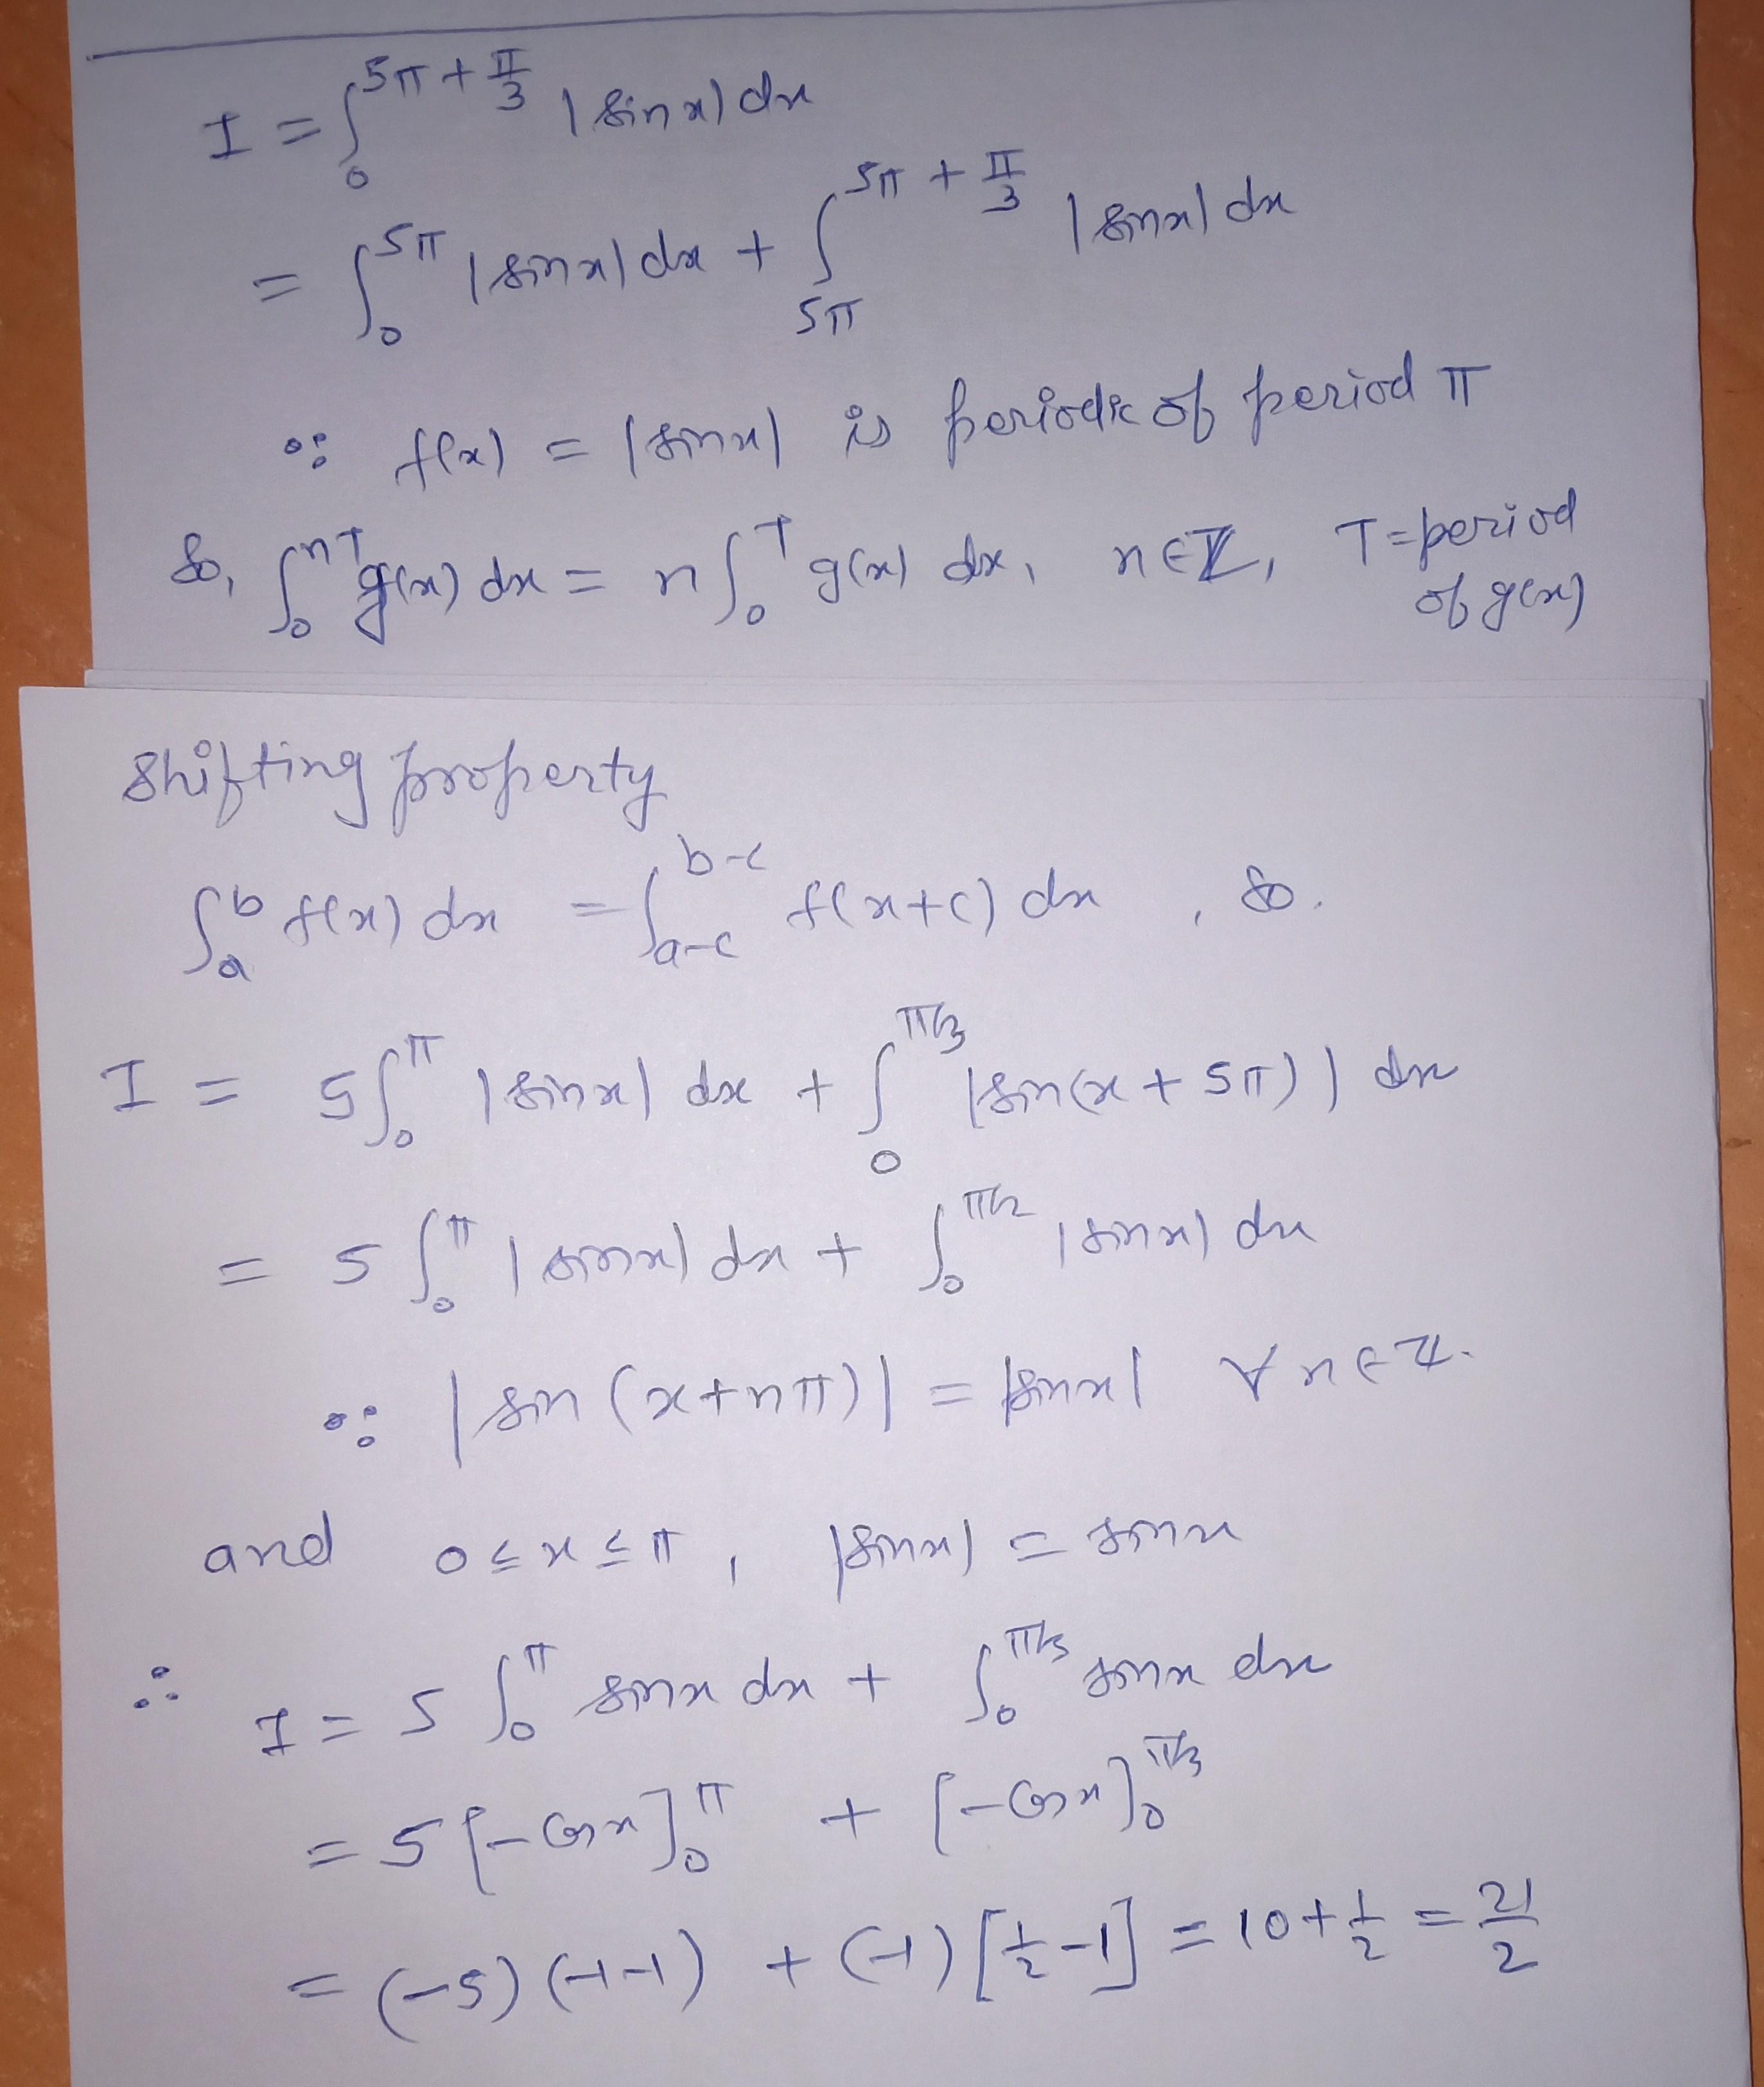 I = ∫₀^{5π + π/3} |sin x| dx
= ∫₀^{5π} |sin x| dx + ∫_{5π}^{5π + π/3} |sin x| dx
∵ f(x) = |sin x| is periodic of period π
So, ∫₀^{nT} g(x) dx = n ∫₀^{T} g(x) dx, n ∈ ℤ, T = period of g(x)
Shifting property
∫ₐ^{b} f(x) dx = ∫_{a-c}^{b-c} f(x+c) dx , so.
I = 5 ∫₀^{π} |sin x| dx + ∫₀^{π/3} |sin(x + 5π)| dx
= 5 ∫₀^{π} |sin x| dx + ∫₀^{π/2} |sin x| dx
∵ |sin (x + nπ)| = |sin x| ∀ n ∈ ℤ.
and 0 ≤ x ≤ π , |sin x| = sin x
∴ I = 5 ∫₀^{π} sin x dx + ∫₀^{π/3} sin x dx
= 5 [-cos x]₀^{π} + [-cos x]₀^{π/3}
= (-5) (-1-1) + (-1) [1/2 - 1] = 10 + 1/2 = 21/2